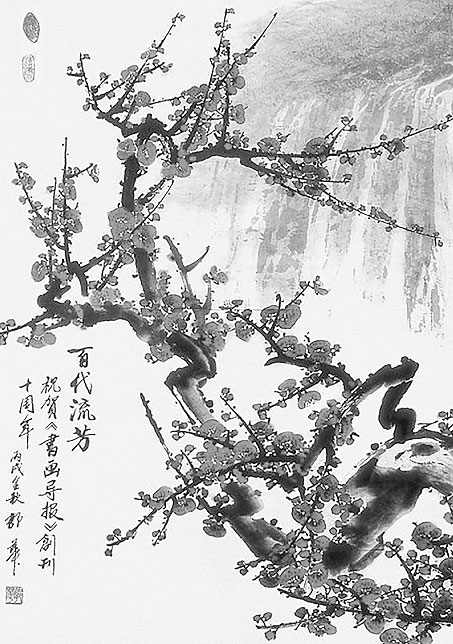 百代流芳
祝贺《書画导报》創刊
十周年
丙戌金秋 郝華